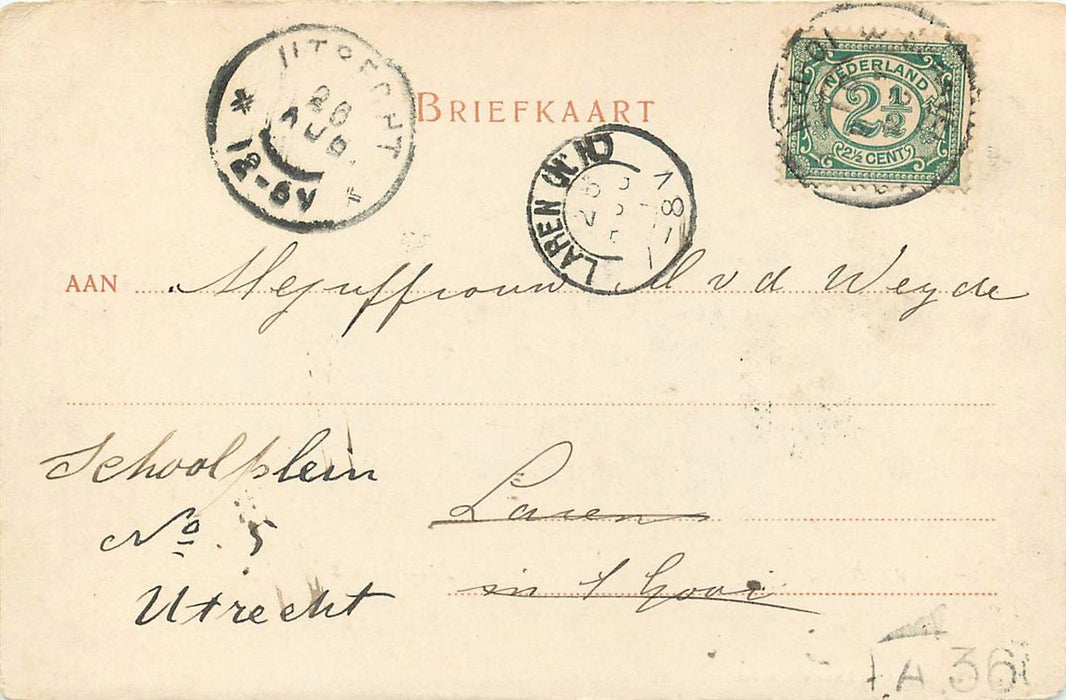 UTRECHT
26
AUG.
12-6V
BRIEFKAART
LAREN (N.H.)
NEDERLAND
2½
2½ CENT
AAN Mejuffrouw M v d Weyde
Schoolplein
No. 5
Utrecht
Laren
in 't Gooi